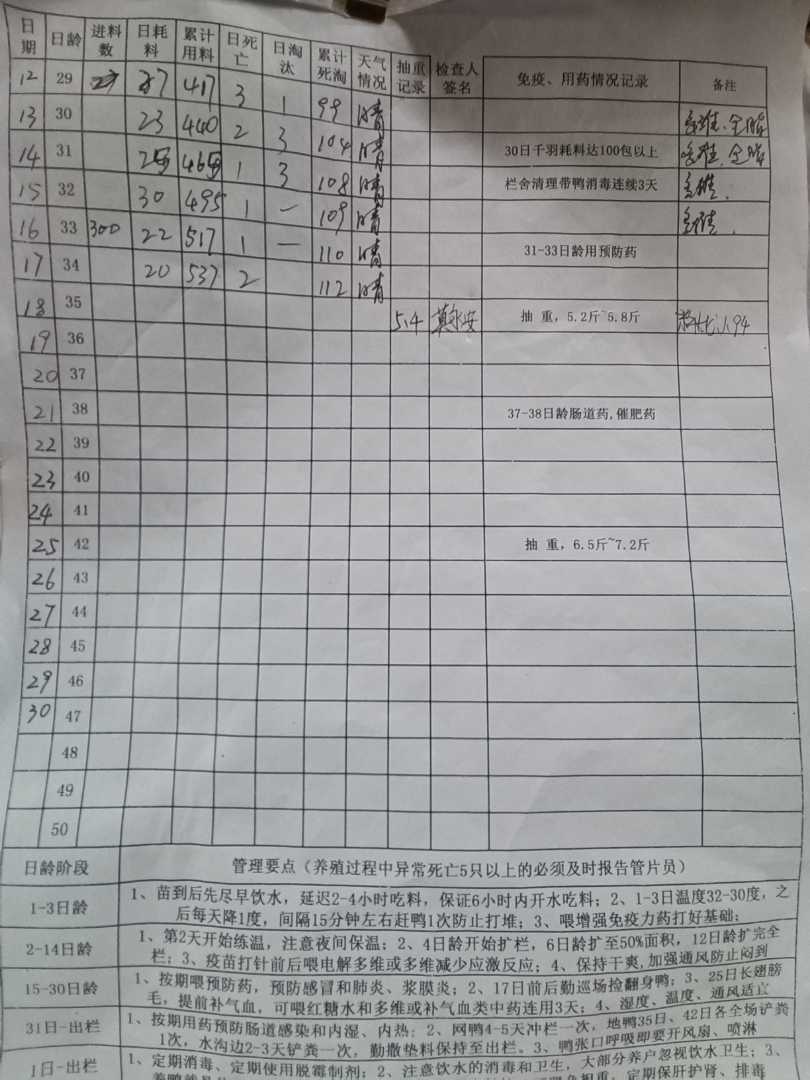 日期 日龄 进料数 日耗料 累计用料 日死亡 日淘汰 累计死淘 天气情况 抽重记录 检查人签名 免疫、用药情况记录 备注
12 29 27 417 3 1 99 晴
13 30 23 440 2 3 104 晴 多维.
14 31 25 465 1 3 108 晴 30日千羽耗料达100包以上 多维.
15 32 30 495 1 — 109 晴 栏舍清理带鸭消毒连续3天 多维.
16 33 300 22 517 1 — 110 晴 多维.
17 34 20 537 2 112 晴 31-33日龄用预防药
18 35 5.4 抽 重，5.2斤~5.8斤
19 36
20 37
21 38 37-38日龄肠道药,催肥药
22 39
23 40
24 41
25 42 抽 重，6.5斤~7.2斤
26 43
27 44
28 45
29 46
30 47
48
49
50
日龄阶段 管理要点（养殖过程中异常死亡5只以上的必须及时报告管片员）
1-3日龄 1、苗到后先尽早饮水，延迟2-4小时吃料，保证6小时内开水吃料；2、1-3日温度32-30度，之
后每天降1度，间隔15分钟左右赶鸭1次防止打堆；3、喂增强免疫力药打好基础；
2-14日龄 1、第2天开始练温，注意夜间保温；2、4日龄开始扩栏，6日龄扩至50%面积，12日龄扩完全
栏；3、疫苗打针前后喂电解多维或多维减少应激反应；4、保持干爽,加强通风防止闷到
15-30日龄 1、按期喂预防药，预防感冒和肺炎、浆膜炎；2、17日前后勤巡场捡翻身鸭；3、25日长翅膀
毛，提前补气血，可喂红糖水和多维或补气血类中药连用3天；4、湿度、温度、通风适宜
31日-出栏 1、按期用药预防肠道感染和内湿、内热；2、网鸭4-5天冲栏一次，地鸭35日、42日各全场铲粪
1次，水沟边2-3天铲粪一次，勤撒垫料保持至出栏。3、鸭张口呼吸即要开风扇、喷淋
1日-出栏 1、定期消毒、定期使用脱霉制剂；2、注意饮水的消毒和卫生，大部分养户忽视饮水卫生；3、
定期保肝护肾、排毒